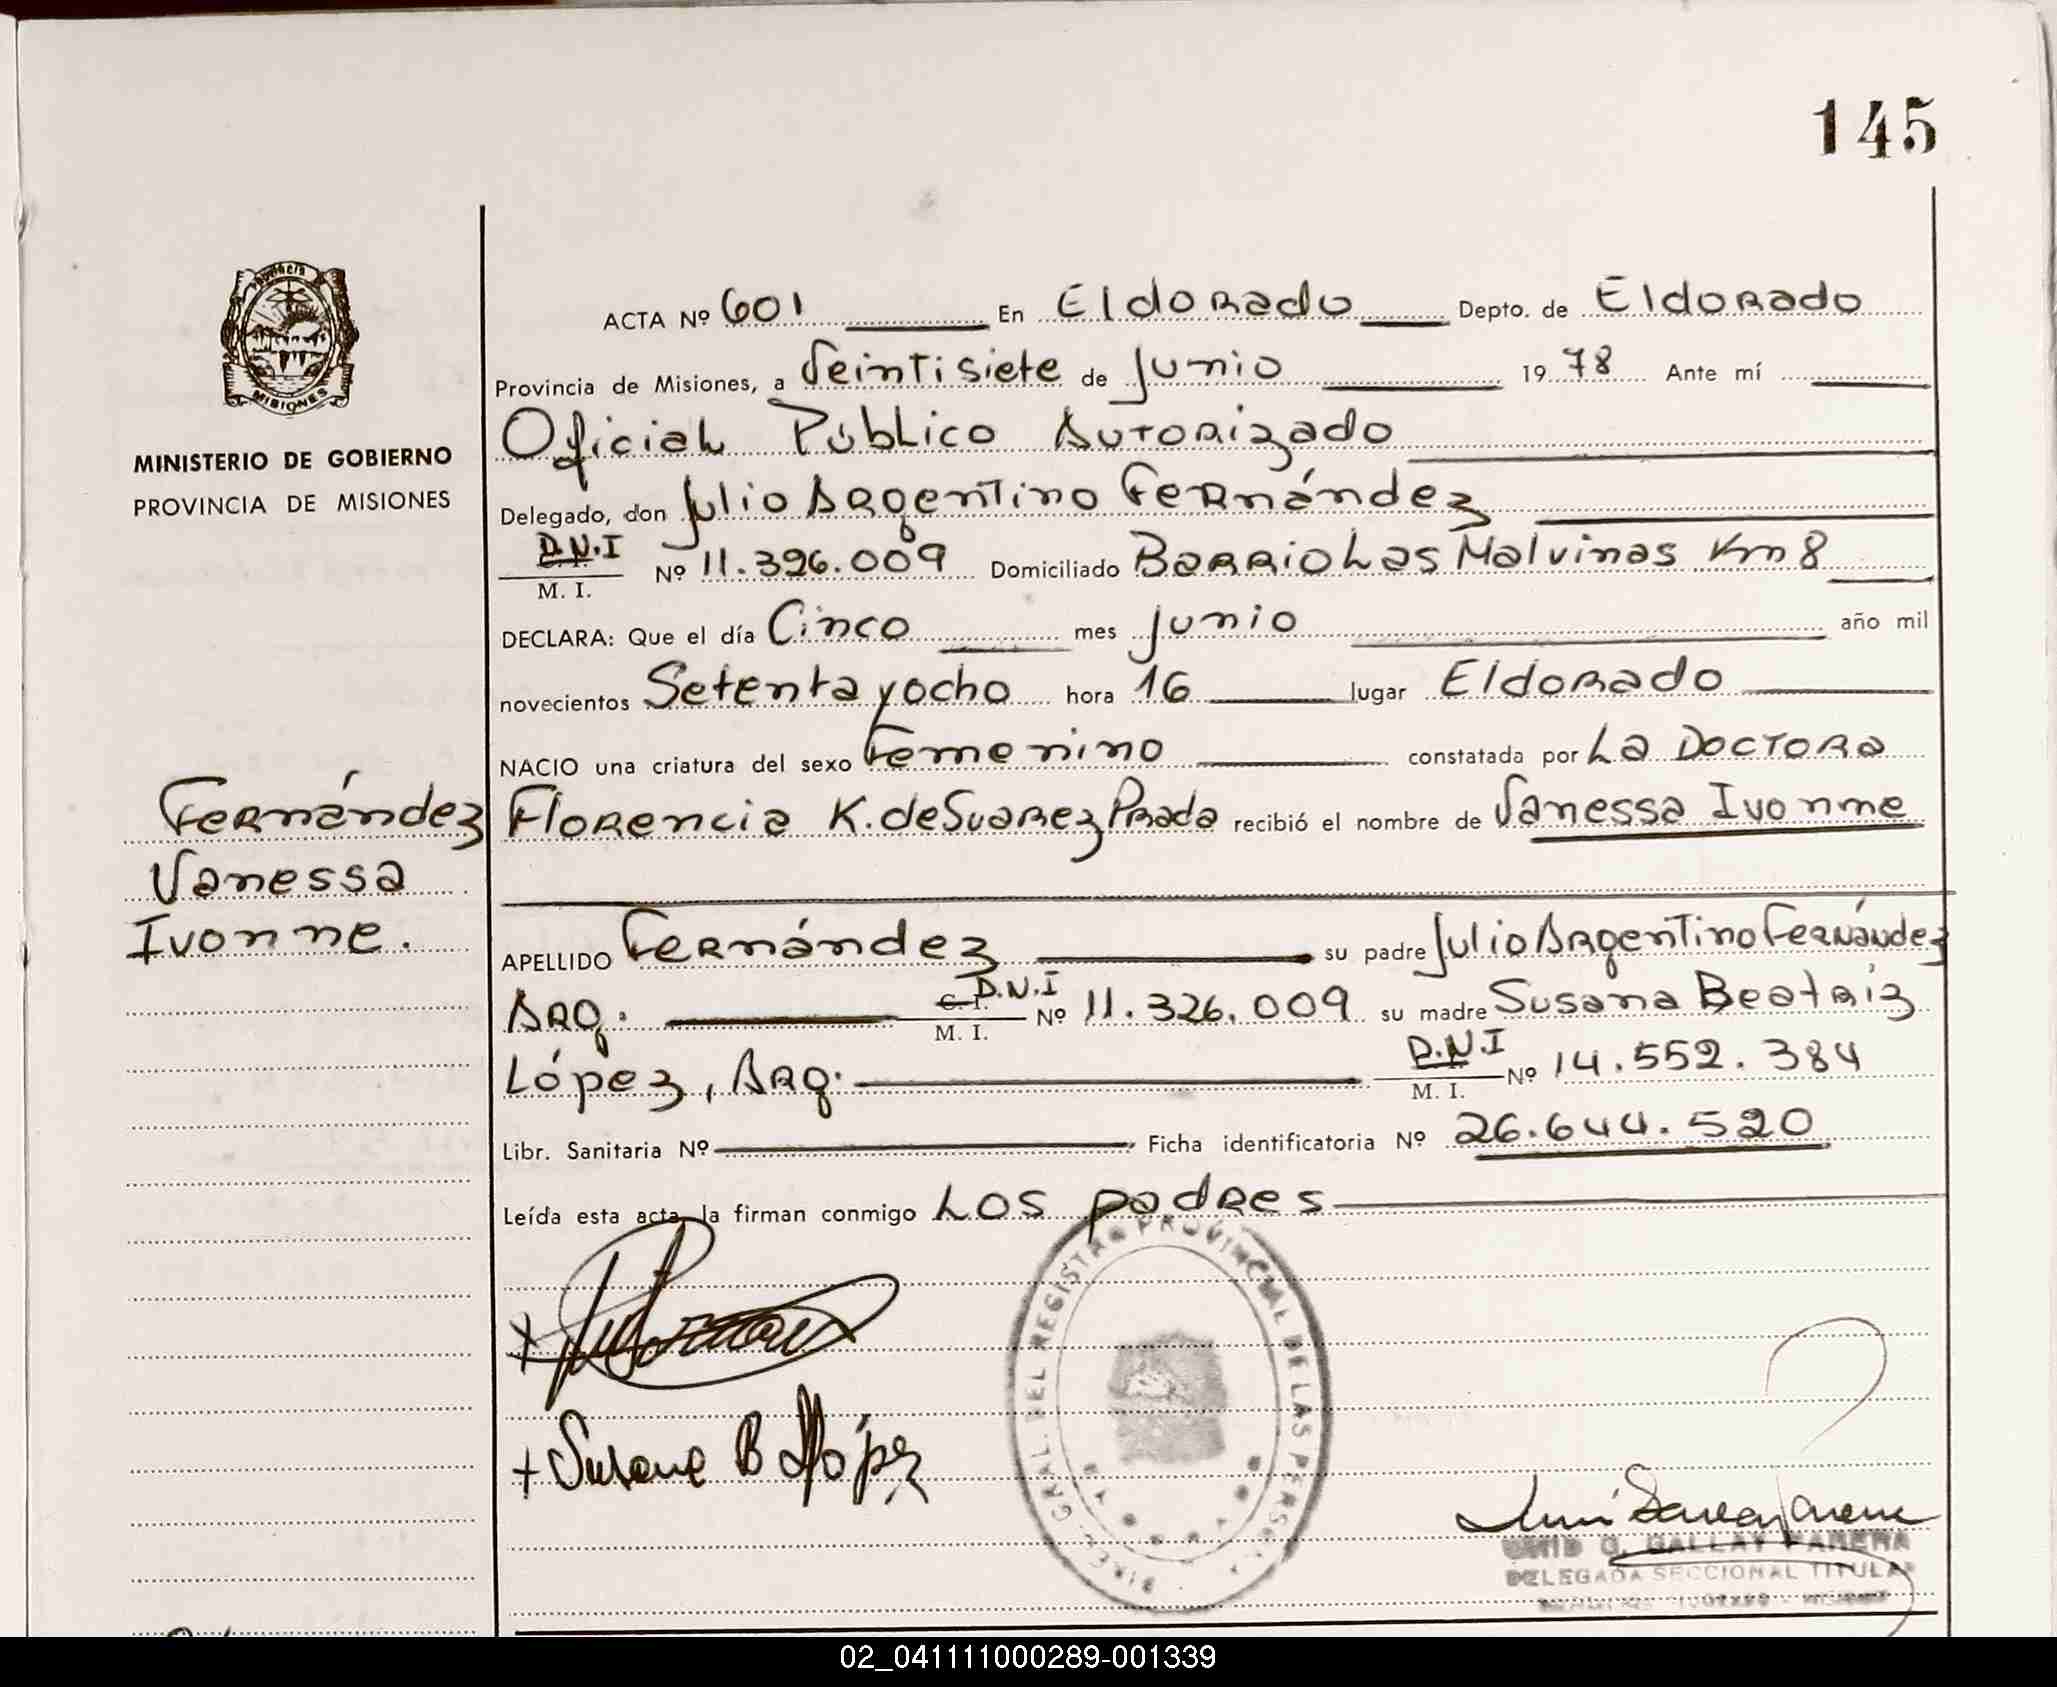 145
Provincia
MISIONES
MINISTERIO DE GOBIERNO
PROVINCIA DE MISIONES
Fernández
Vanessa
Ivonne.
ACTA Nº 601 En Eldorado Depto. de Eldorado
Provincia de Misiones, a Veintisiete de Junio 1978 Ante mí
Oficial Público Autorizado
Delegado, don Julio Argentino Fernández
D.N.I
M. I. Nº 11.326.009 Domiciliado Barrio Las Malvinas Km 8
DECLARA: Que el día Cinco mes Junio año mil
novecientos Setenta y ocho hora 16 lugar Eldorado
NACIO una criatura del sexo Femenino constatada por La Doctora
Florencia K. de Suarez Prada recibió el nombre de Vanessa Ivonne
APELLIDO Fernández su padre Julio Argentino Fernández
Arg. C. I. D.N.I M. I. Nº 11.326.009 su madre Susana Beatriz
López, Arg. D.N.I M. I. Nº 14.552.384
Libr. Sanitaria Nº Ficha identificatoria Nº 26.644.520
Leída esta acta, la firman conmigo Los padres
+ Susana B López
DIREC. GRAL. DEL REGISTRO PROVINCIAL DE LAS PERSONAS
G. GALLAY PARERA
DELEGADA SECCIONAL TITULAR
02_041111000289-001339